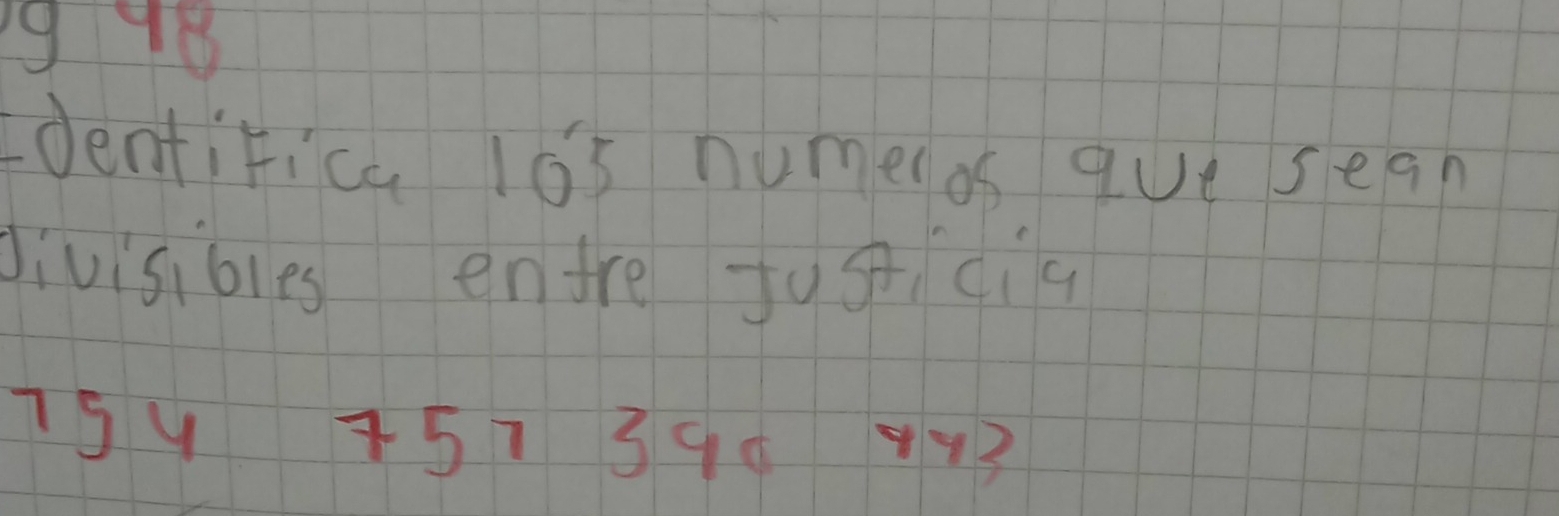 g 48
Identifica los numeros que sean
divisibles entre Justicia
154 757 396 443